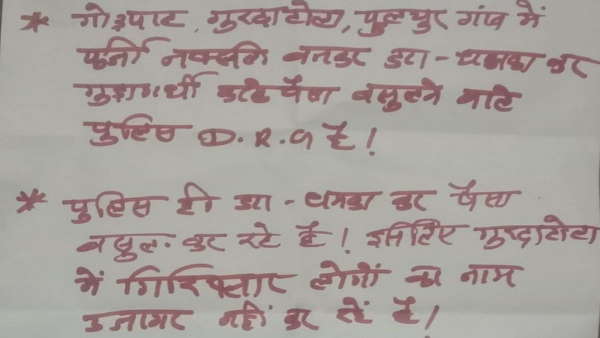 * गोरपाट, गुरदाटोला, पुलपुर गांव में
फर्जी नक्सली बनकर डरा-धमका कर
गुंडागर्दी करके पैसा वसुलने वाले
पुलिस D.R.G है!
* पुलिस ही डरा-धमका कर पैसा
वसुल कर रहे है! इसलिए गुरदाटोला
में गिरफ्तार लोगों का नाम
उजागर नहीं कर रहें है!